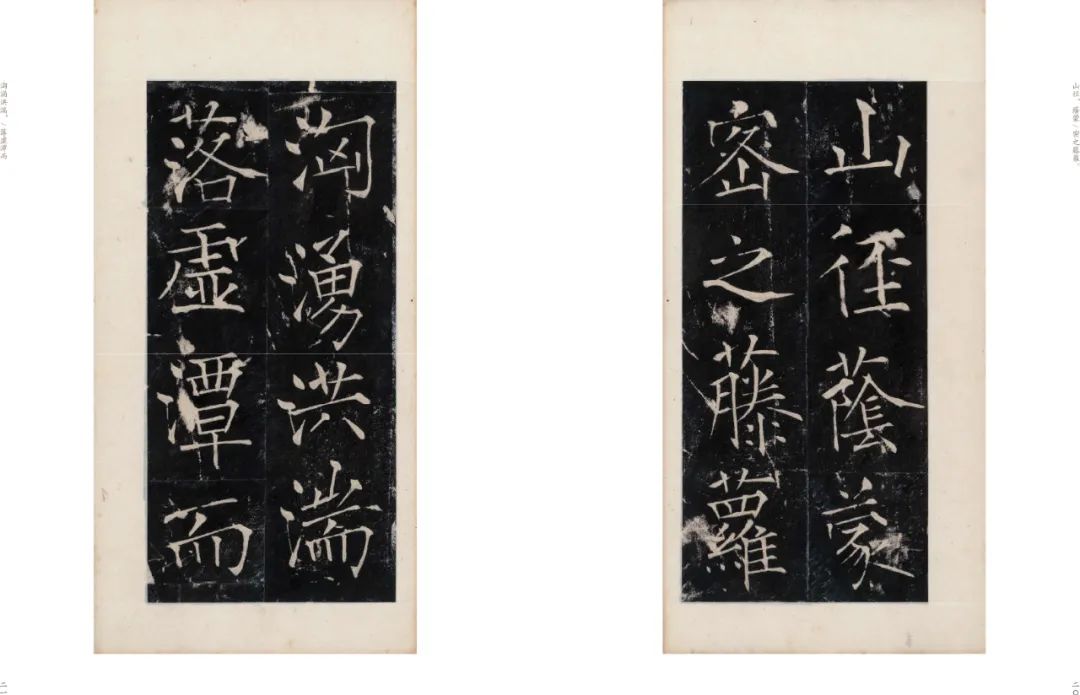 山徑，蔭蒙／密之藤蘿。
山徑蔭蒙
密之藤蘿
二〇
洶湧洪湍
落虛潭而
洶湧洪湍，／落虛潭而
二一